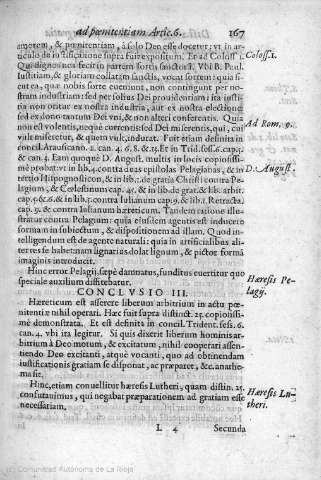 ad pœnitentiam Artic. 6. 167
amorem, & pœnitentiam, à solo Deo esse docetur; vt in ar-
ticulo de iustificatione supra fuit expositum. Et ad Coloss. 1.
Qui dignos nos fecit in partem sortis sanctorũ. Vbi B. Paul.
iustitiam, & gloriam collatam sanctis, vocat sortem: quia si
cut ea, quæ nobis sorte eueniunt, non contingunt per no-
stram industriam: sed per solius Dei prouidentiam; ita iusti-
tia non oritur ex nostra industria, aut ex nostra electione
sed ex dono tantum Dei vni, & non alteri conferentis. Quia
non est volentis, neque currentis sed Dei miserentis, qui, cui
vult miseretur, & quem vult, indurat. Fuit etiam definita in
concil. Arausicano. 2. can. 4. 6. 8. & 25. Et in Trid. sess. 6. cap. 5.
& can. 4. Eam quoque D. August. multis in locis copiosissi-
mè probat: vt in lib. 4. contra duas epistolas Pelagianas, & in
tertio Hypognosticon, & in lib. 1. de gratia Christi contra Pe-
lagium, & Cœlestinum cap. & in lib. de grat. & lib. arbit.
cap. & 6. & in lib. 1. contra Iulianum cap. 9. & lib. 1. Retracta.
cap. 9. & contra Iulianum hæreticum. Tandem ratione illu-
stratur contra Pelagium: quia eiusdem agentis est inducere
formam in subiectum, & dispositionem ad illam. Quod in-
telligendum est de agente naturali: quia in artificialibus ali-
ter res se habet nam lignarius dolat lignum, & pictor formã
imaginis introducit.
Hinc error Pelagij sæpè damnatus, funditus euertitur quo
speciale auxilium diffitebatur.
CONCLVSIO III.
Hæreticum est asserere liberum arbitrium in actu pœ-
nitentiæ nihil operari. Hæc fuit supra distinct. 25. copiosissi-
mè demonstrata. Et est definita in concil. Trident. sess. 6.
can. 4. vbi ita legitur. Si quis dixerit liberum hominis ar-
bitrium à Deo motum, & excitatum, nihil cooperari assen-
tiendo Deo excitanti, atque vocanti, quo ad obtinendam
iustificationis gratiam se disponat, ac præparet, &c. anathe-
ma sit.
Hinc, etiam conuellitur hæresis Lutheri, quam distin. 25.
confutauimus, qui negabat præparationem ad gratiam esse
necessariam.
L 4 Secunda
Coloss. 1.
Ad Rom. 9.
D. August.
Hæresis Pe-
lagij.
Hæresis Lu-
theri.
(c) Comunidad Autónoma de La Rioja